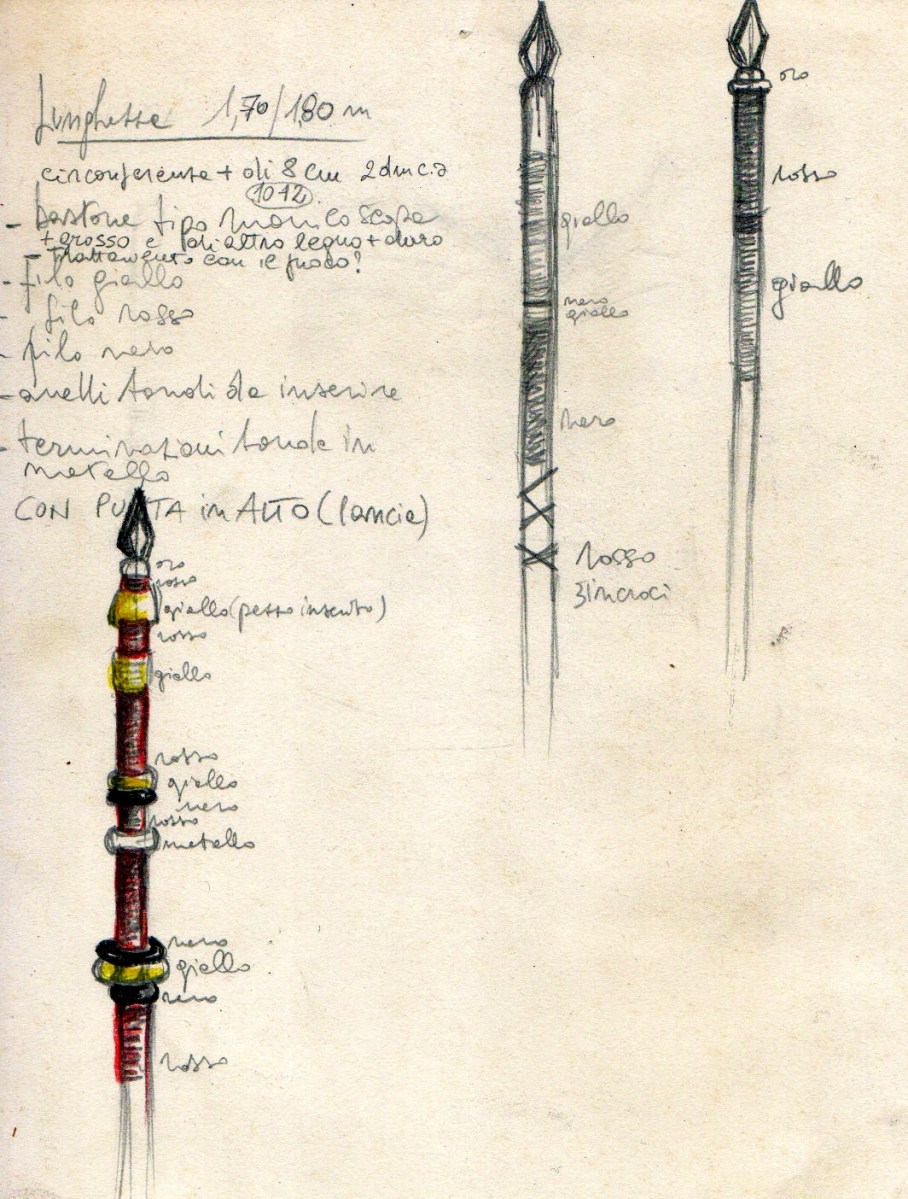 Lunghezza 1,70/1,80 m
circonferenza + di 8 cm 2 dm c.a
10 12
- bastone tipo manico scopa
+ grosso e di altro legno + duro
- trattamento con il fuoco?
- filo giallo
- filo rosso
- filo nero
- anelli tondi da inserire
- terminazioni tonde in
metallo
CON PUNTA in ALTO (lancia)
oro
rosso
giallo (pezzo inserito)
rosso
giallo
rosso
giallo
nero
rosso
metallo
nero
giallo
nero
rosso
giallo
nero
giallo
nero
rosso
3 incroci
oro
rosso
giallo